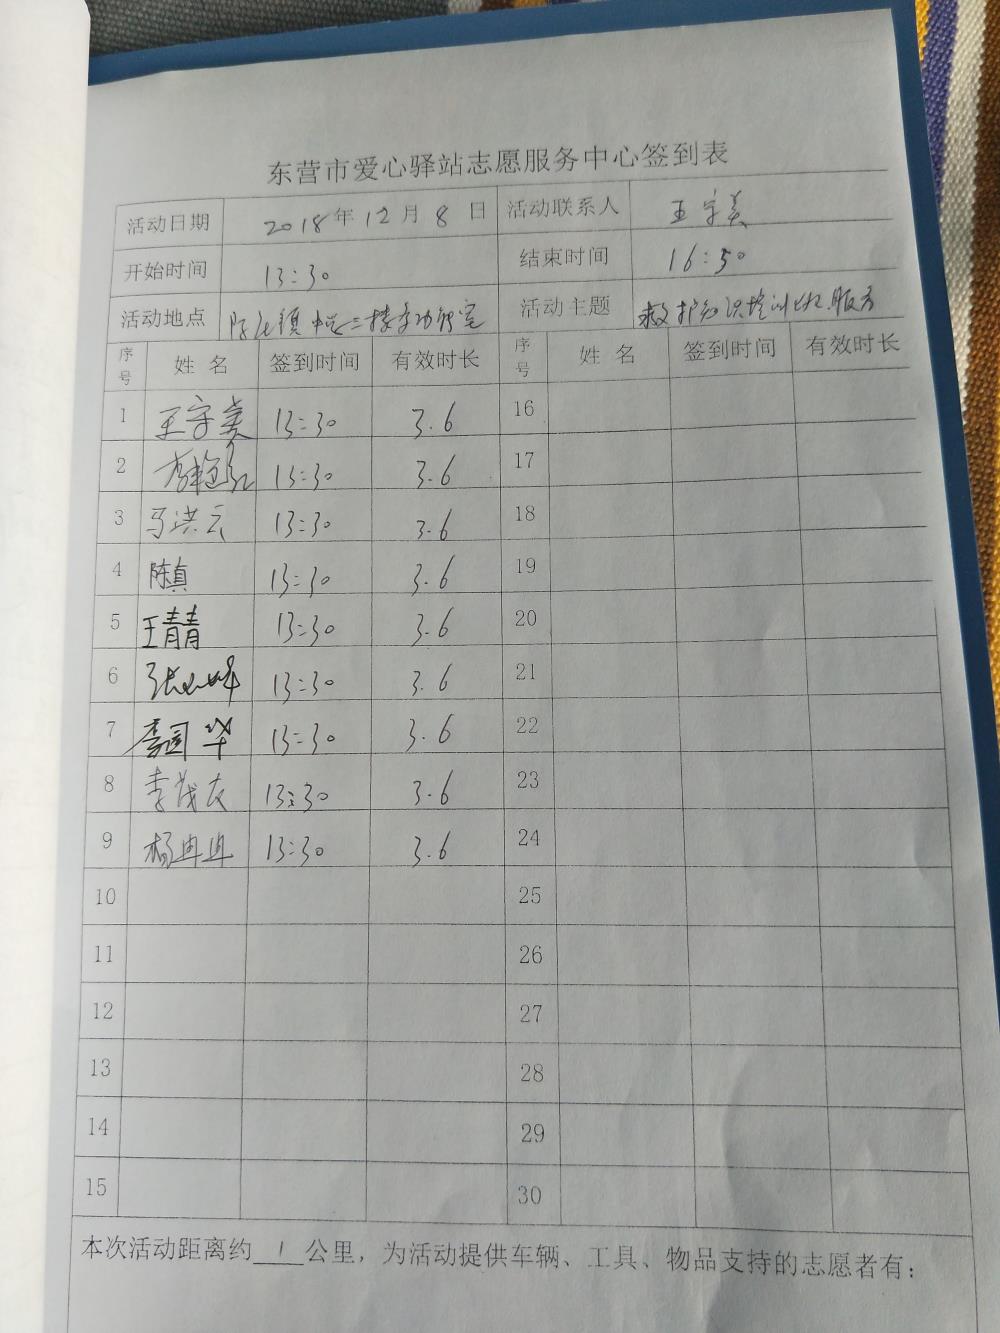 东营市爱心驿站志愿服务中心签到表
活动日期 2018年12月8日 活动联系人 王守美
开始时间 13:30 结束时间 16:50
活动地点 镇中心二楼多功能室 活动主题 救护知识培训 服务
序号 姓名 签到时间 有效时长 序号 姓名 签到时间 有效时长
1 王守美 13:30 3.6 16
2 13:30 3.6 17
3 马洪云 13:30 3.6 18
4 陈真 13:30 3.6 19
5 王青青 13:30 3.6 20
6 13:30 3.6 21
7 李国华 13:30 3.6 22
8 李茂友 13:30 3.6 23
9 杨冉冉 13:30 3.6 24
10 25
11 26
12 27
13 28
14 29
15 30
本次活动距离约 1 公里，为活动提供车辆、工具、物品支持的志愿者有：